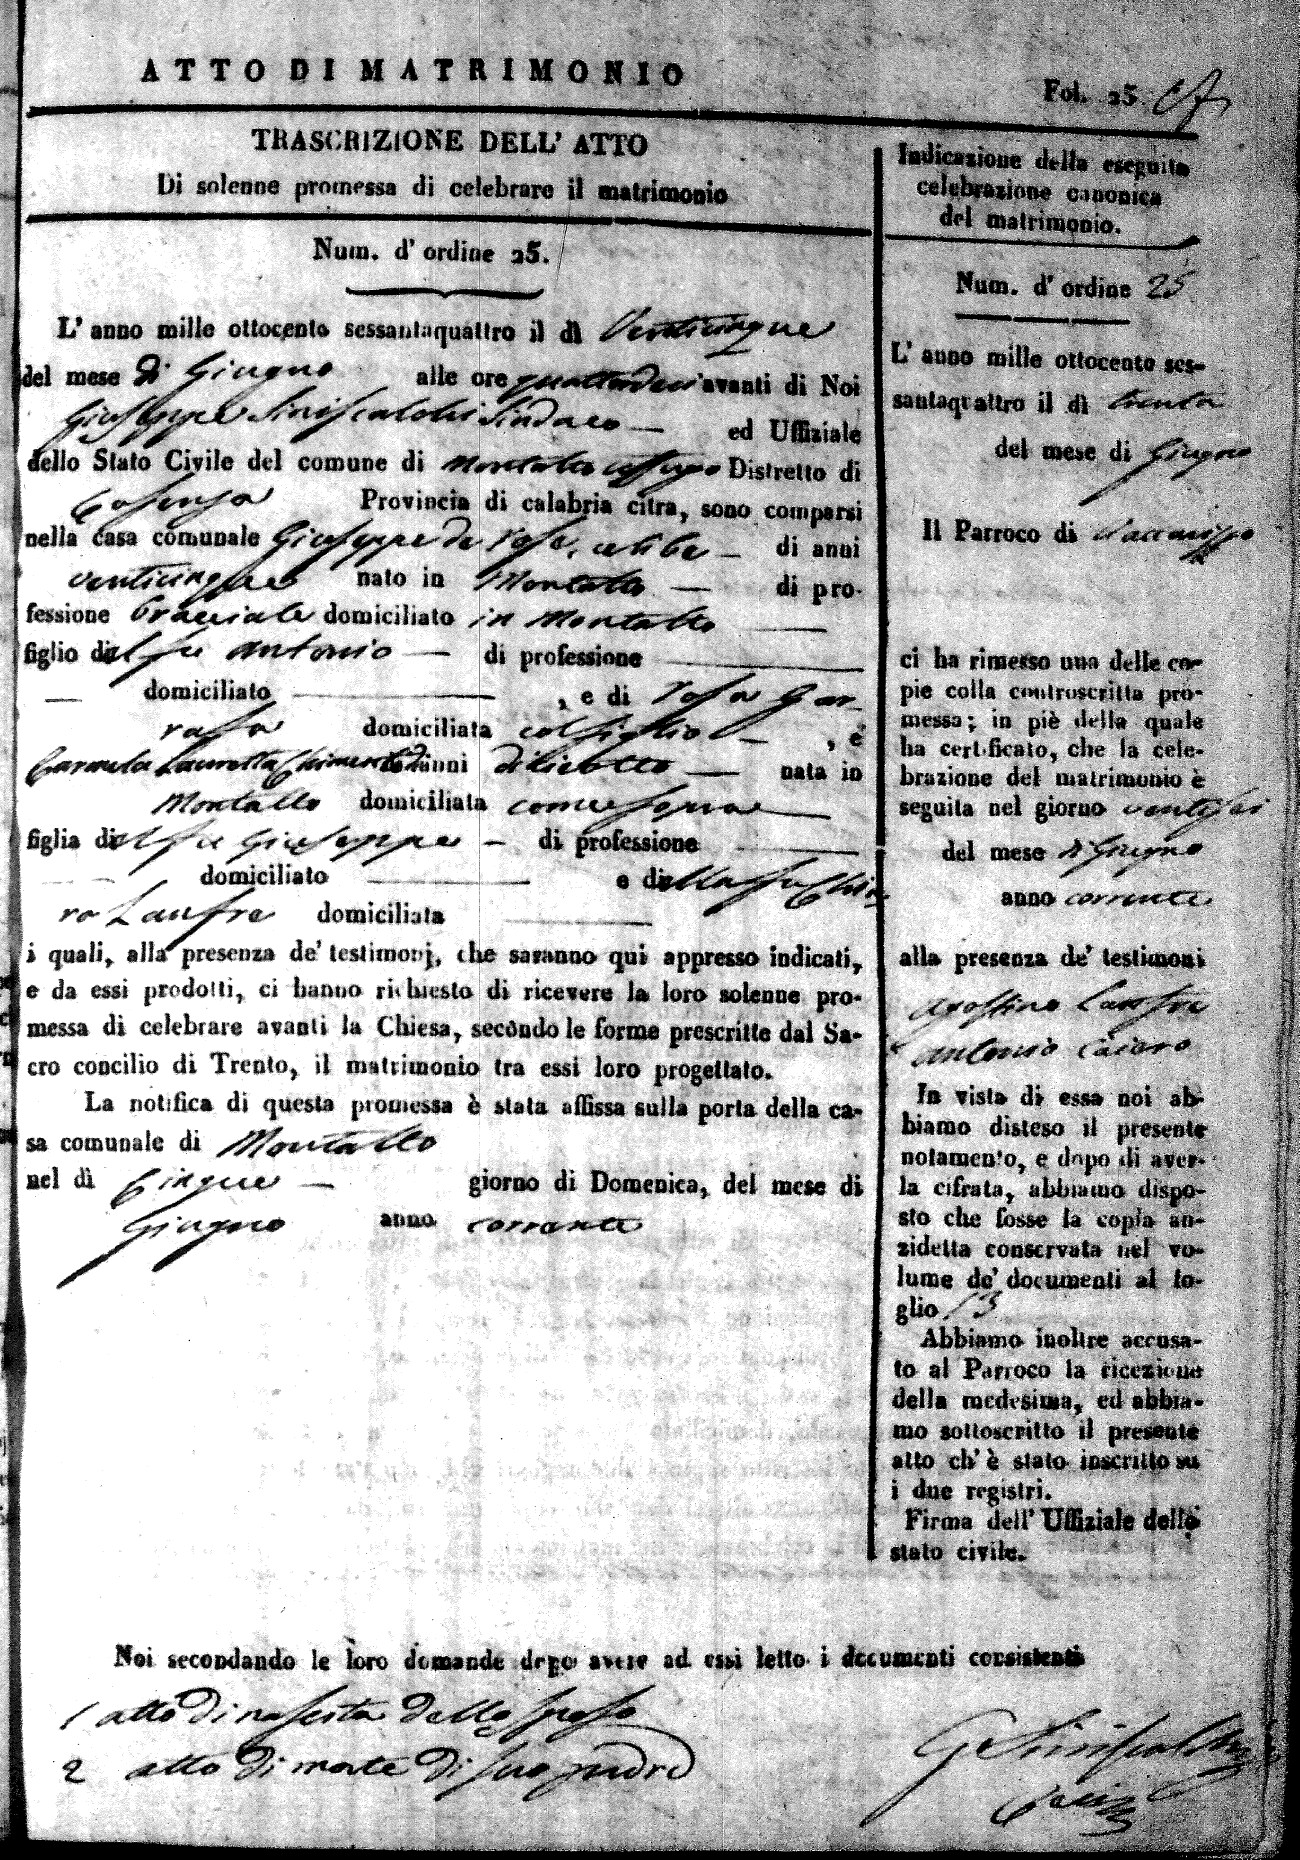 ATTO DI MATRIMONIO
Fol. 25
TRASCRIZIONE DELL' ATTO
Di solenne promessa di celebrare il matrimonio
Num. d' ordine 25.
L' anno mille ottocento sessantaquattro il dì Venticinque
del mese di Giugno alle ore quattordeci avanti di Noi
Giuseppe Siniscalchi Sindaco — ed Uffiziale
dello Stato Civile del comune di Montalto Uffugo Distretto di
Cosenza Provincia di calabria citra, sono comparsi
nella casa comunale Giuseppe de Rose, celibe — di anni
venticinque nato in Montalto — di pro-
fessione bracciale domiciliato in Montalto —
figlio del fu Antonio — di professione —
— domiciliato — , e di Rosa Gar
rafa domiciliata col figlio — , e
Carmela Lauretta Chimenti di anni diciotto — nata in
Montalto domiciliata come sopra —
figlia del fu Giuseppe — di professione —
— domiciliato — e della fu Chia
ra Lanfre domiciliata —
i quali, alla presenza de' testimonj, che saranno qui appresso indicati,
e da essi prodotti, ci hanno richiesto di ricevere la loro solenne pro-
messa di celebrare avanti la Chiesa, secondo le forme prescritte dal Sa-
cro concilio di Trento, il matrimonio tra essi loro progettato.
La notifica di questa promessa è stata affissa sulla porta della ca-
sa comunale di Montalto
nel dì Cinque — giorno di Domenica, del mese di
Giugno anno corrente
Indicazione della eseguita
celebrazione canonica
del matrimonio.
Num. d' ordine 25
L' anno mille ottocento ses-
santaquattro il dì trenta
del mese di Giugno
Il Parroco di Vaccarizzo
ci ha rimesso una delle co-
pie colla controscritta pro-
messa; in piè della quale
ha certificato, che la cele-
brazione del matrimonio è
seguita nel giorno ventisei
del mese di Giugno
anno corrente
alla presenza de' testimoni
Agostino Lanfre
Antonio Caiero
In vista di essa noi ab-
biamo disteso il presente
notamento, e dopo di aver-
la cifrata, abbiamo dispo-
sto che fosse la copia an-
zidetta conservata nel vo-
lume de' documenti al fo-
glio 13
Abbiamo inoltre accusa-
to al Parroco la ricezione
della medesima, ed abbia-
mo sottoscritto il presente
atto ch' è stato inscritto su
i due registri.
Firma dell' Uffiziale dello
stato civile.
Noi secondando le loro domande dopo avere ad essi letto i documenti consistenti
1 atto di nascita dello sposo
2 atto di morte di suo padre
G Siniscalchi